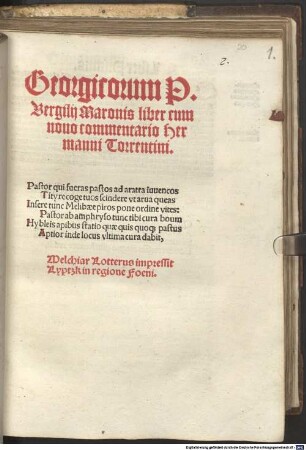 2.
1.
Georgicorum P.
Vergilij Maronis liber cum
nouo commentario Her
manni Torrentini.
Pastor qui fueras pastos ad aratra Iuuencos
Tityre coge tuos scindere vt arua queas
Insere tunc Melibœe piros pone ordine vites:
Pastor ab amphryso tunc tibi cura boum
Hybleis apibus statio quæ quis quoq; pastus
Aptior inde locus vltima cura dabit,
Melchiar Lotterus impressit
Lyptzk in regione Foeni.